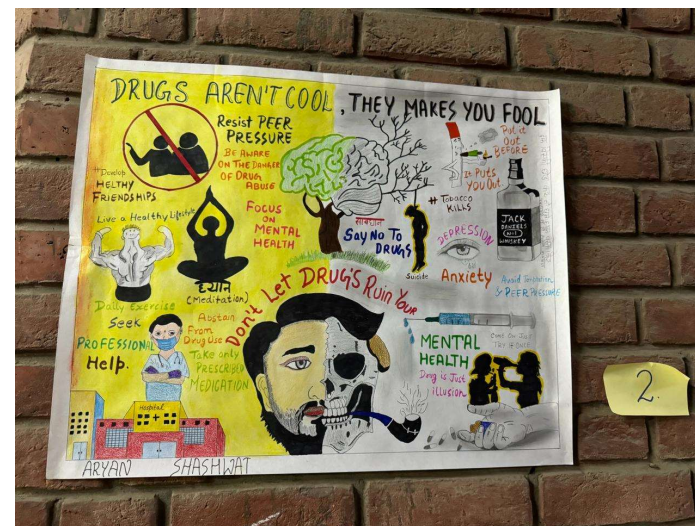 DRUGS AREN'T COOL, THEY MAKES YOU FOOL
Resist PEER
PRESSURE
BE AWARE
ON THE DANGER
OF DRUG
ABUSE
"Develop
HELTHY
FRIENDSHIPS
Live a Healthy Lifestyle
FOCUS
ON
MENTAL
HEALTH
ध्यान
(Meditation)
Daily Exercise
Seek
PROFESSIONAL
Help.
Abstain
From
Drug Use
Take only
PRESCRIBED
MEDICATION
Hospital
सावधान
Say No To
DRUGS
Suicide
Put it
Out
BEFORE
It PUTS
YOU Out.
# Tobacco
KILLS
JACK
DANIELS
No 1
WHISKEY
DEPRESSION
Anxiety
Avoid Temptation
& PEER PRESSURE
Don't Let DRUG'S Ruin Your
MENTAL
HEALTH
Drug is Just
illusion
Come On Just
TRY it ONCE
ARYAN SHASHWAT
2.